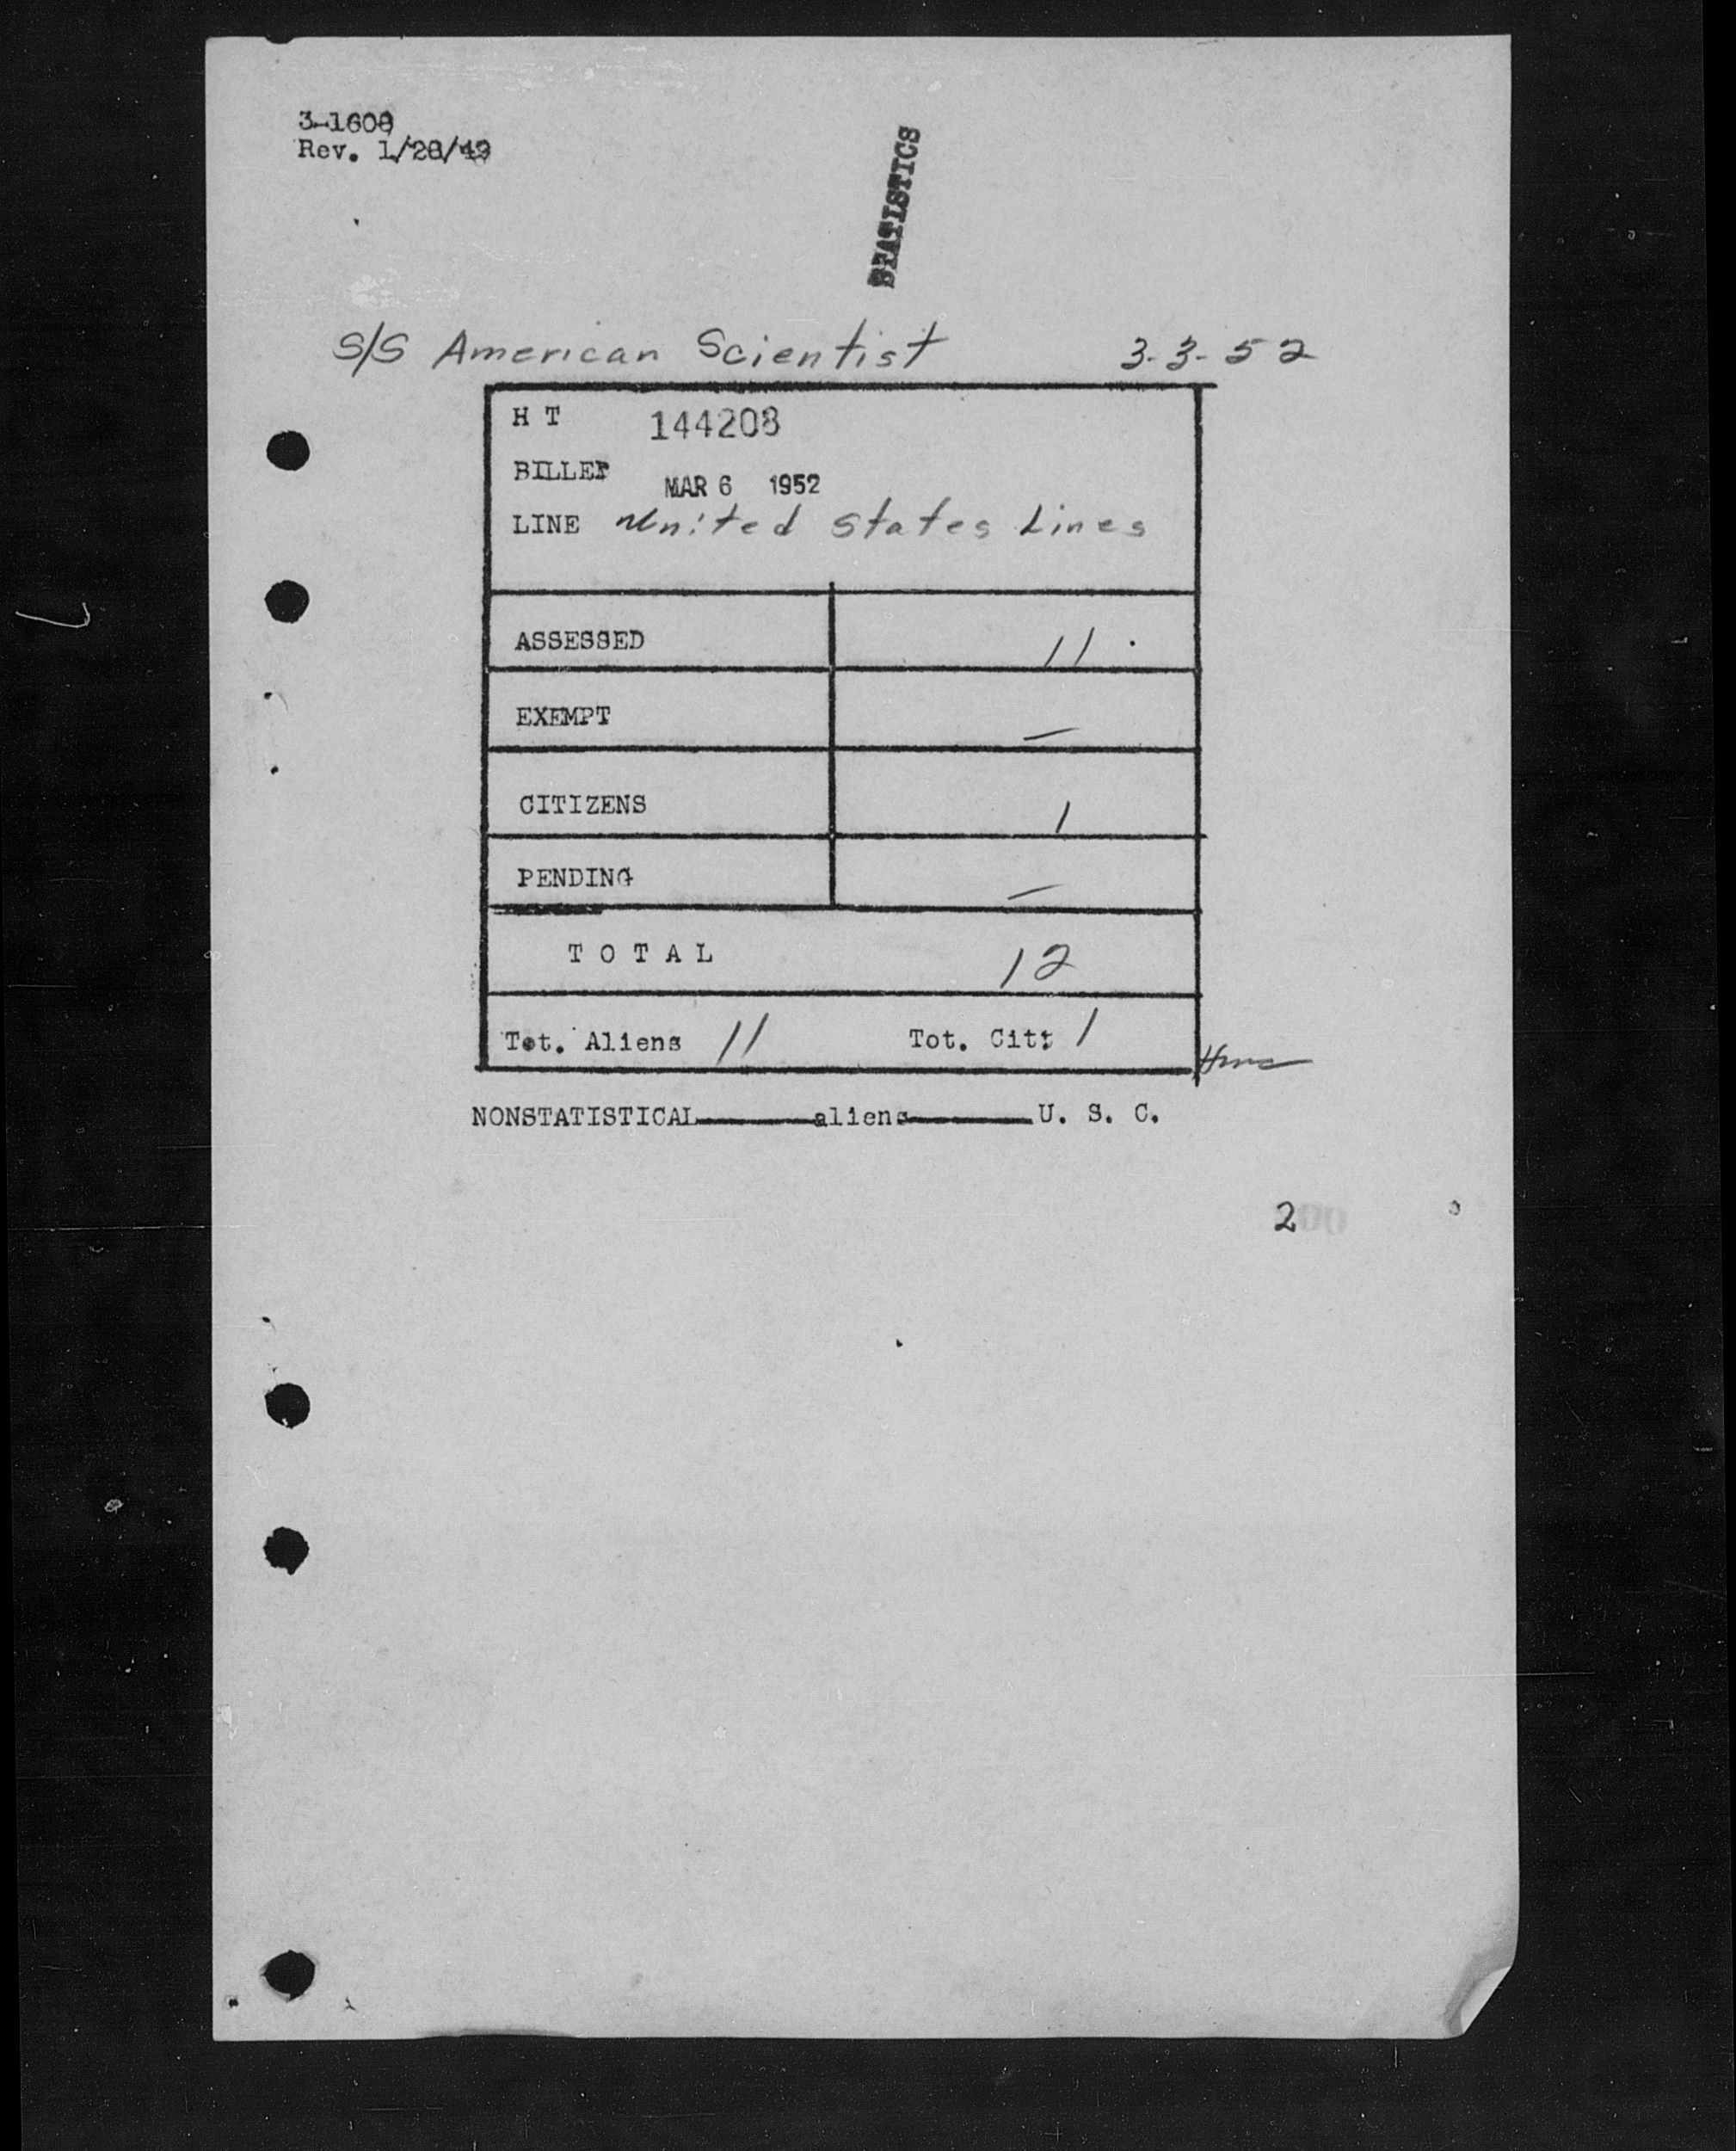 3-1608
Rev. 1/28/49
STATISTICS
S/S American Scientist 3-3-52
H T 144208
BILLED MAR 6 1952
LINE United States Lines
ASSESSED 11
EXEMPT —
CITIZENS 1
PENDING —
T O T A L 12
Tot. Aliens 11 Tot. Cit: 1
NONSTATISTICAL aliens U. S. C.
2